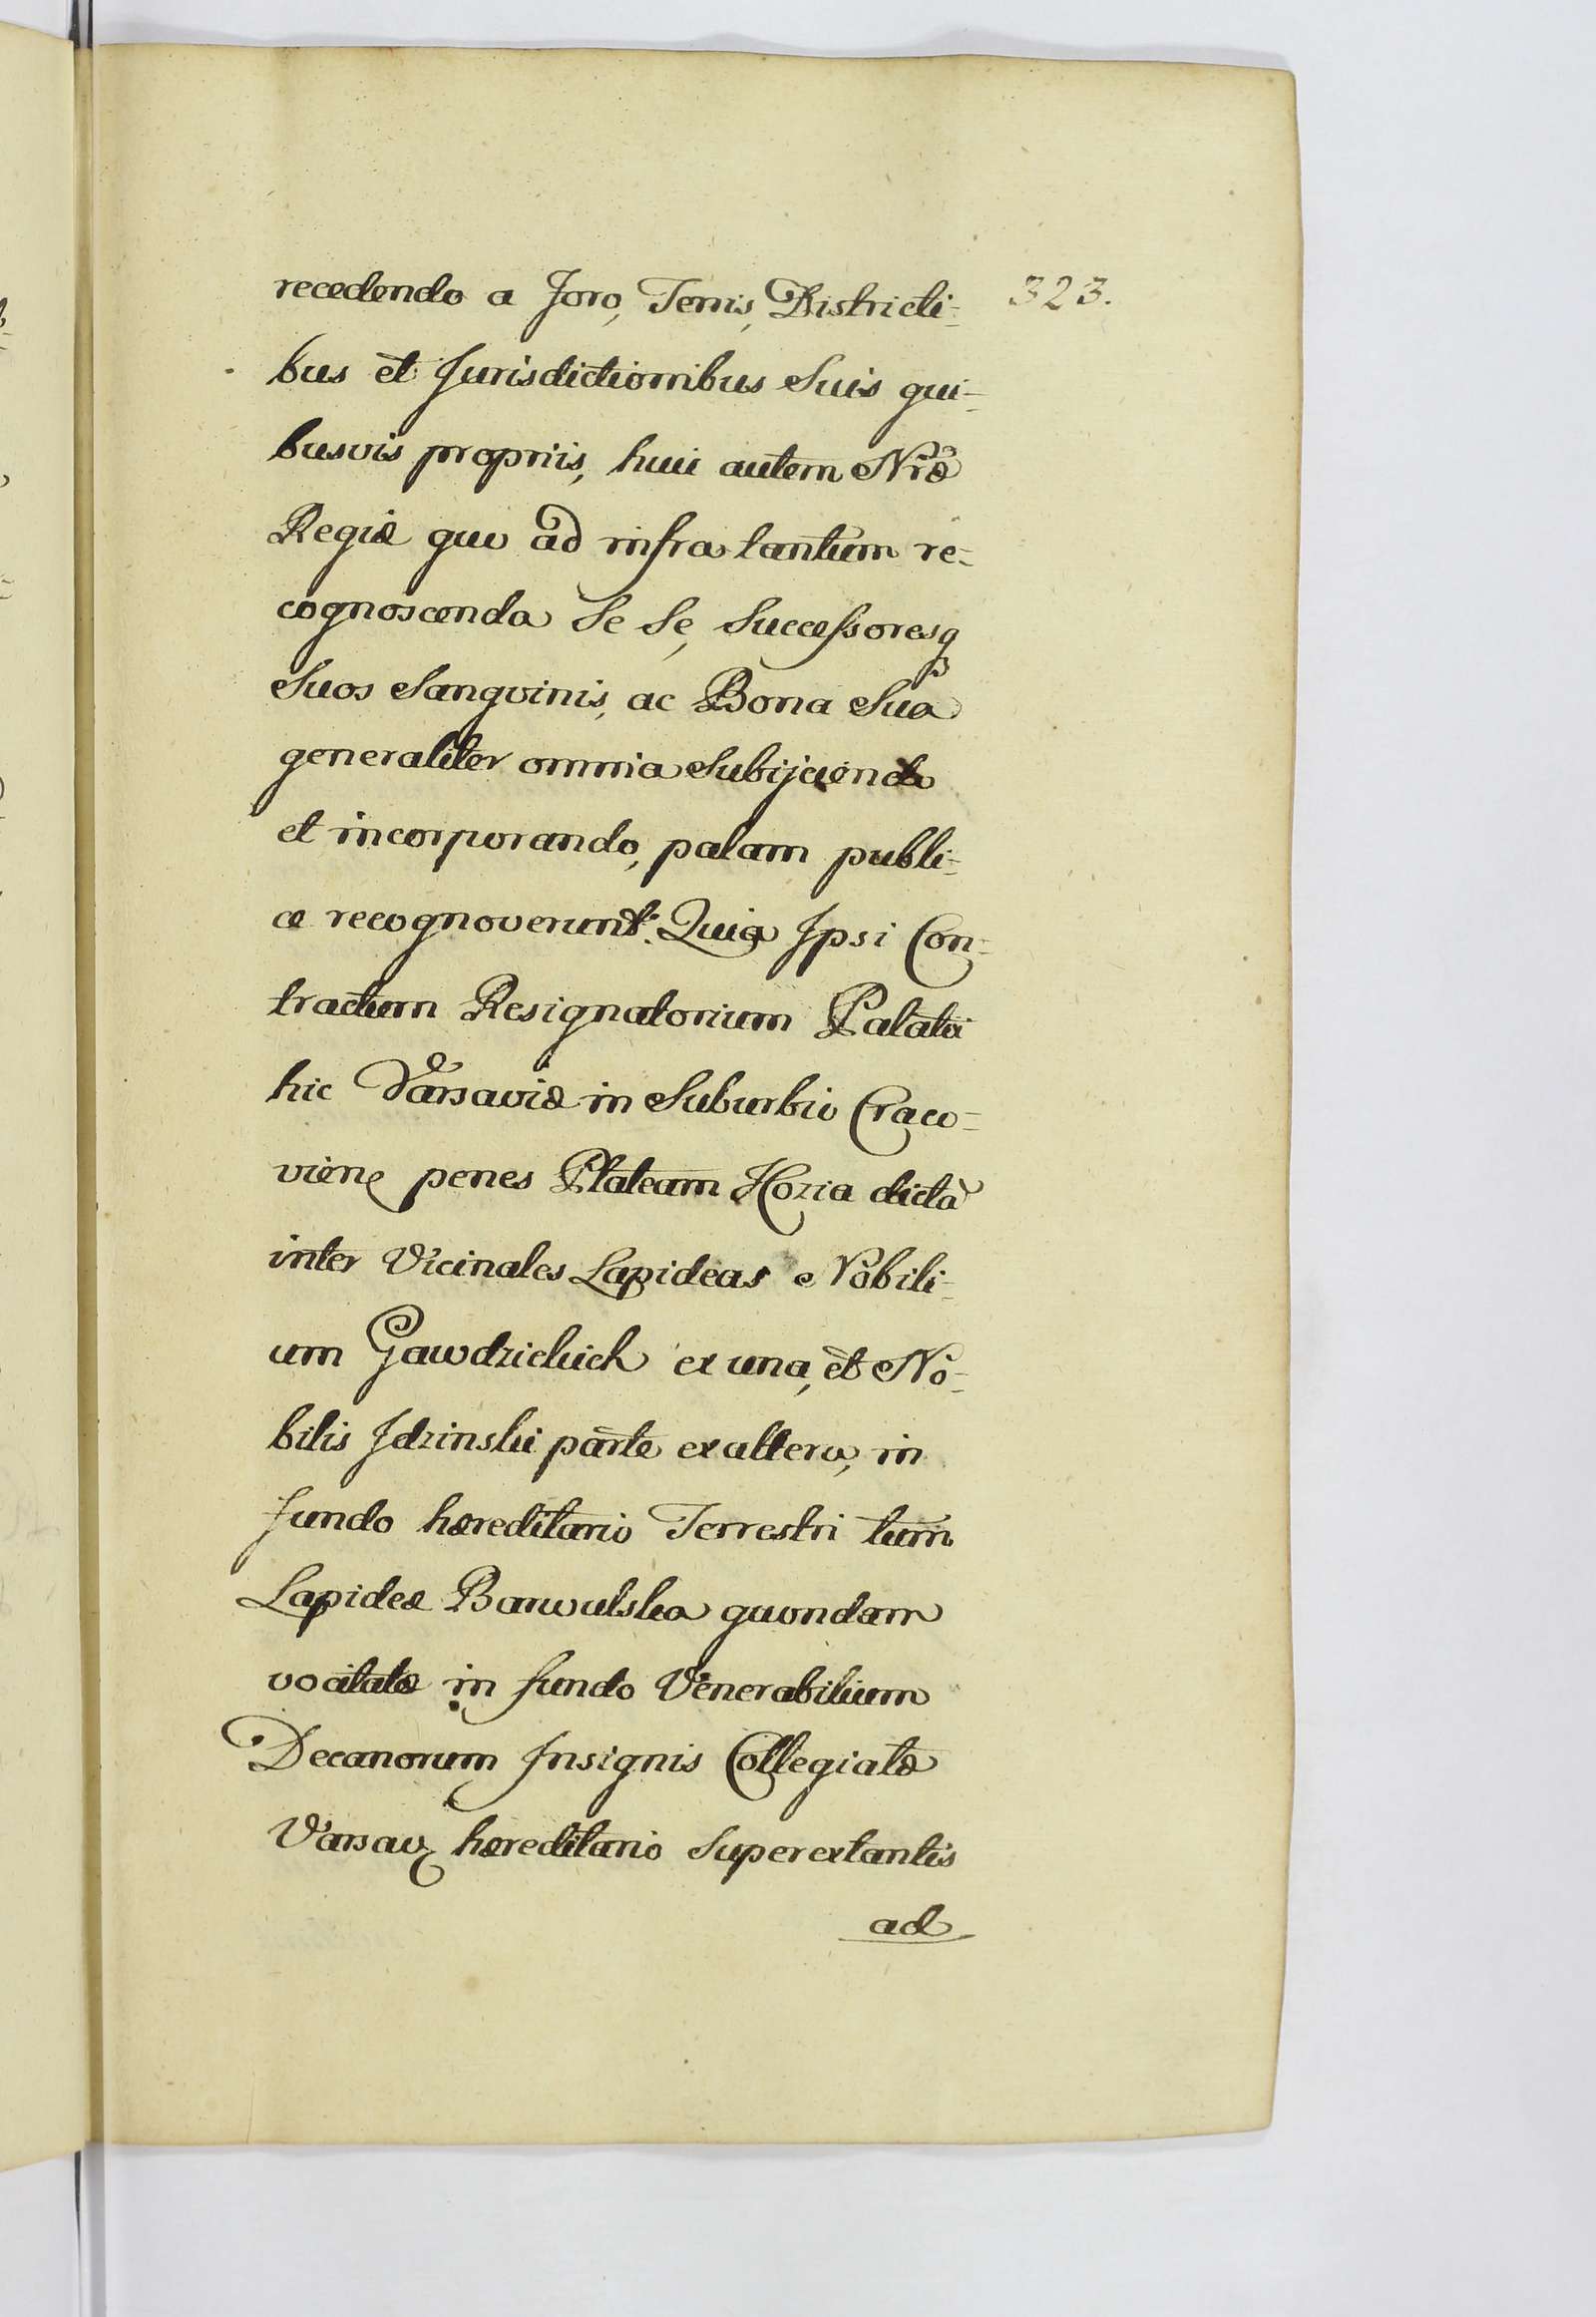 recedendo a Foro, Terris, Districti- 323.
bus et Jurisdictionibus Suis qui-
busvis propriis, huic autem Nræ
Regiæ quo ad infra tantum re-
cognoscenda Se Se, Successoresq
Suos Sangvinis, ac Bona Sua
generaliter omnia Subijciendo
et incorporando, palam publi-
ce recognoverunt. Quia Ipsi Con-
tractum Resignatorium Palatii
hic Varsaviæ in Suburbio Craco-
vien penes Plateam Kozia dictã
inter Vicinales Lapideas Nobili-
um Gawdzickich ex una, et No-
bilis Jdzinski parte ex altera, in
fundo hæreditario Terrestri tum
Lapideæ Barwulska quondam
vocitatæ in fundo Venerabilium
Decanorum Insignis Collegiatæ
Varsav hæreditario Superextantis
ad